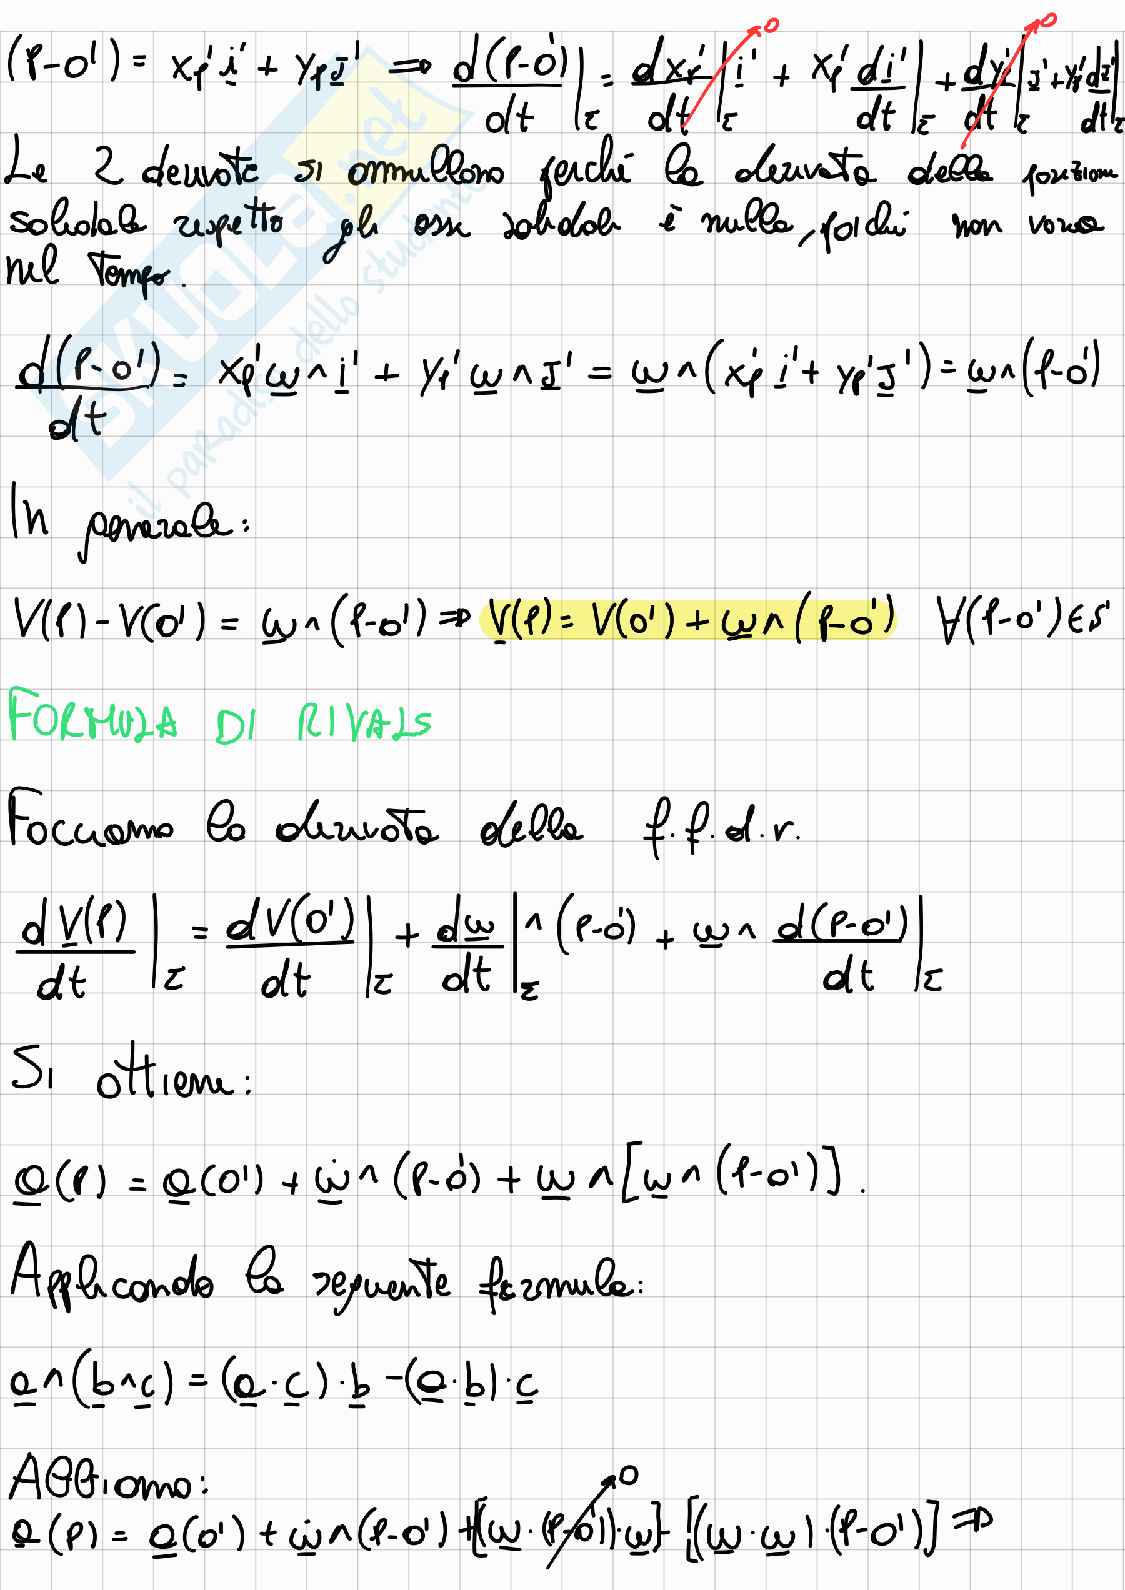 (P-O') = xp' i' + yp' j' ⇒ d(P-O')/dt |τ = dxp'/dt |τ i' + xp' di'/dt |τ + dyp'/dt |τ j' + yp' dj'/dt |τ
→ 0 → 0
Le 2 derivate si annullano perché la derivata della posizione
solidale rispetto gli assi solidali è nulla, poiché non varia
nel tempo.
d(P-O')/dt = xp' ω ∧ i' + yp' ω ∧ j' = ω ∧ (xp' i' + yp' j') = ω ∧ (P-O')
In generale:
V(P) - V(O') = ω ∧ (P-O') ⇒ V(P) = V(O') + ω ∧ (P-O') ∀(P-O') ∈ S'
FORMULA DI RIVALS
Facciamo la derivata della f.f.d.r.
dV(P)/dt |τ = dV(O')/dt |τ + dω/dt |τ ∧ (P-O') + ω ∧ d(P-O')/dt |τ
Si ottiene:
a(P) = a(O') + ω̇ ∧ (P-O') + ω ∧ [ω ∧ (P-O')].
Applicando la seguente formula:
a ∧ (b ∧ c) = (a · c) · b - (a · b) · c
Abbiamo:
→ 0
a(P) = a(O') + ω̇ ∧ (P-O') + [(ω · (P-O')) · ω] - [(ω · ω) · (P-O')] ⇒
SKUOLA.net
il paradiso dello studente